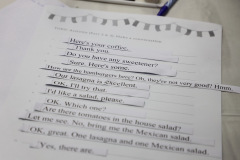 Here's your coffee.
Thank you.
Do you have any sweetener?
Sure. Here's some.
How are the hamburgers here? Oh, they're not very good! Hmm.
Our lasagna is excellent.
OK. I'll try that.
I'd like a salad, please.
OK. Which one?
Are there tomatoes in the house salad?
Let me see. No, bring me the Mexican salad.
OK, great. One lasagna and one Mexican salad.
Yes, there are.